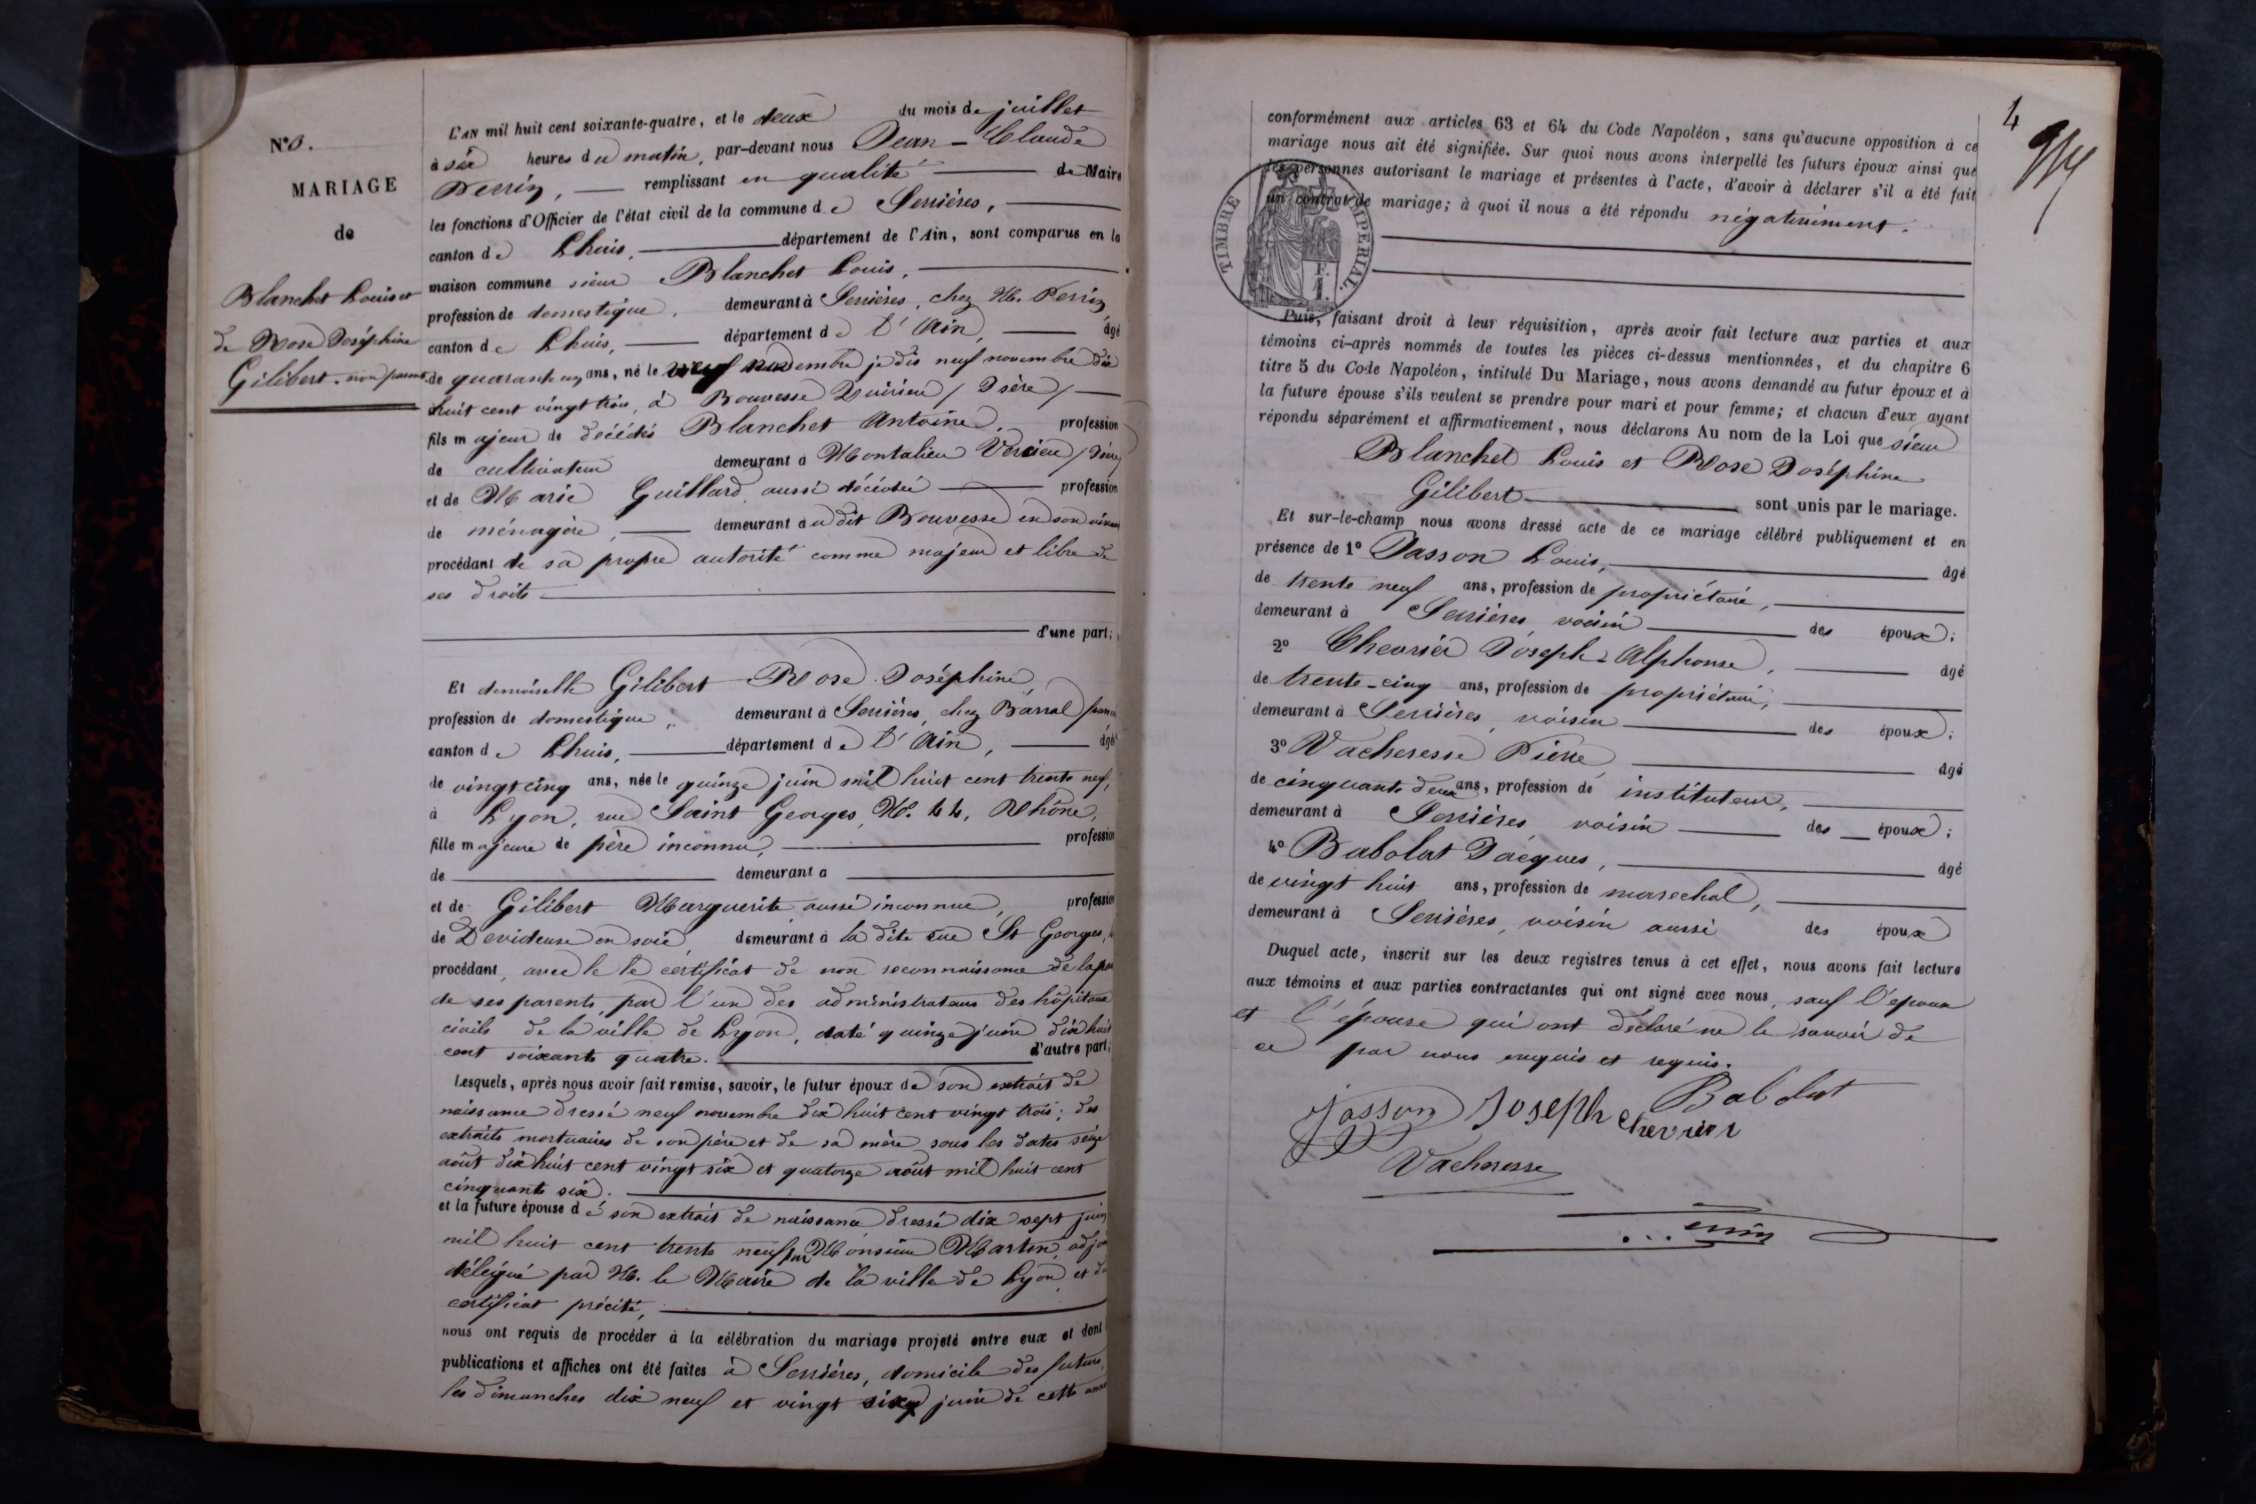 N° 3.
MARIAGE
de
Blanchet Louis et
de Rose Joséphine
Gilibert. non parents
L'AN mil huit cent soixante-quatre, et le deux du mois de juillet
à six heures du matin, par-devant nous Jean-Claude
Perrin, remplissant en qualité de Maire
les fonctions d'Officier de l'état civil de la commune de Serrières,
canton de Lhuis, département de l'Ain, sont comparus en la
maison commune sieur Blanchet Louis,
profession de domestique, demeurant à Serrières, chez M. Perrin
canton de Lhuis, département de l'Ain, âgé
de quarante ans, né le neuf novembre je dis neuf novembre dix
huit cent vingt trois, à Bouvesse Quirieu / Isère /
fils majeur de décédés Blanchet Antoine, profession
de cultivateur demeurant à Montalieu Vercieu / Isère /
et de Marie Guillard, aussi décédée profession
de ménagère, demeurant à u dit Bouvesse en son vivant
procédant de sa propre autorité comme majeur et libre de
ses droits
d'une part;
Et demoiselle Gilibert Rose Joséphine,
profession de domestique, demeurant à Serrières, chez Barral
canton de Lhuis, département de l'Ain, âgé
de vingt cinq ans, née le quinze juin mil huit cent trente neuf,
à Lyon, rue Saint Georges, N°. 44, Rhône,
fille majeure de père inconnu, profession
de demeurant à
et de Gilibert Marguerite aussi inconnue, profession
de Dévideuse en soie, demeurant à la dite rue St Georges,
procédant, avec le le certificat de non reconnaissance de la part
de ses parents, par l'un des administrateurs des hôpitaux
civils de la ville de Lyon, daté quinze juin dix huit
cent soixante quatre. d'autre part;
Lesquels, après nous avoir fait remise, savoir, le futur époux de son extrait de
naissance dressé neuf novembre dix huit cent vingt trois; des
extraits mortuaires de son père et de sa mère sous les dates seize
août dix huit cent vingt six et quatorze août mil huit cent
cinquante six.
et la future épouse de son extrait de naissance dressé dix sept juin
mil huit cent trente neuf par Monsieur Martin, adjoint
délégué par M. le Maire de la ville de Lyon, et du
certificat précité,
nous ont requis de procéder à la célébration du mariage projeté entre eux et dont
publications et affiches ont été faites à Serrières, domicile des futurs,
les dimanches dix neuf et vingt six juin de cette année
4
conformément aux articles 63 et 64 du Code Napoléon, sans qu'aucune opposition à ce
mariage nous ait été signifiée. Sur quoi nous avons interpellé les futurs époux ainsi que
les personnes autorisant le mariage et présentes à l'acte, d'avoir à déclarer s'il a été fait
un contrat de mariage; à quoi il nous a été répondu négativement.
TIMBRE IMPERIAL.
Puis, faisant droit à leur réquisition, après avoir fait lecture aux parties et aux
témoins ci-après nommés de toutes les pièces ci-dessus mentionnées, et du chapitre 6
titre 5 du Code Napoléon, intitulé Du Mariage, nous avons demandé au futur époux et à
la future épouse s'ils veulent se prendre pour mari et pour femme; et chacun d'eux ayant
répondu séparément et affirmativement, nous déclarons Au nom de la Loi que sieur
Blanchet Louis et Rose Joséphine
Gilibert sont unis par le mariage.
Et sur-le-champ nous avons dressé acte de ce mariage célébré publiquement et en
présence de 1° Jasson Louis, âgé
de trente neuf ans, profession de propriétaire,
demeurant à Serrières voisin des époux;
2° Chevrier Joseph-Alphonse, âgé
de trente-cinq ans, profession de propriétaire,
demeurant à Serrières, voisin des époux;
3° Vacheresse Pierre, âgé
de cinquante deux ans, profession de instituteur,
demeurant à Serrières voisin des époux;
4° Babolat Jacques, âgé
de vingt huit ans, profession de marechal,
demeurant à Serrières, voisin aussi des époux
Duquel acte, inscrit sur les deux registres tenus à cet effet, nous avons fait lecture
aux témoins et aux parties contractantes qui ont signé avec nous, sauf l'époux
et l'épouse qui ont déclaré ne le savoir de
ce par nous enquis et requis.
Jasson Joseph Chevrier Babolat
Vacheresse